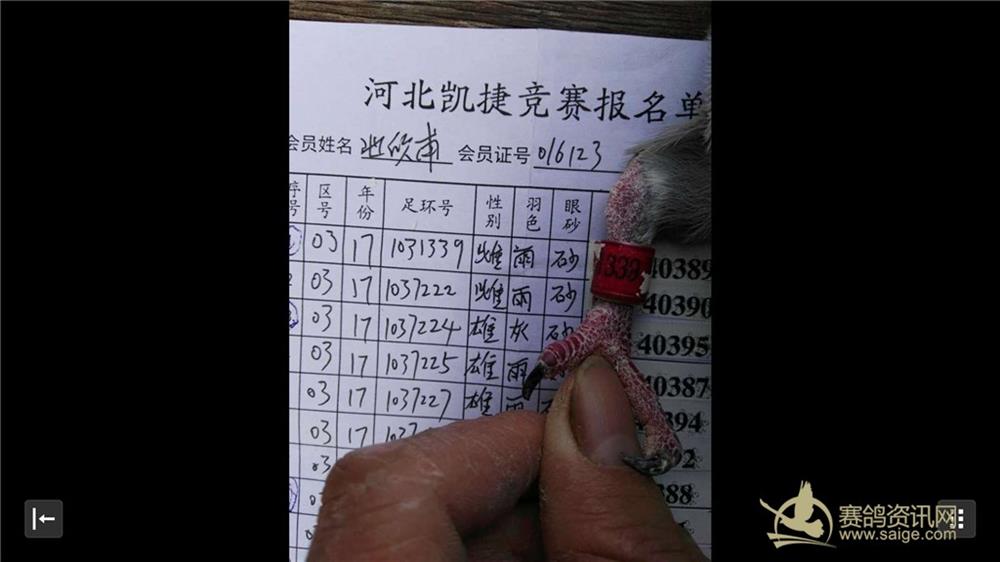 河北凯捷竞赛报名单
会员姓名 会员证号 016123
序号 区号 年份 足环号 性别 羽色 眼砂
03 17 1031339 雌 雨 砂 339 40389
03 17 1037222 雌 雨 砂 40390
03 17 1037224 雄 灰 砂 40395
03 17 1037225 雄 雨 40387
03 17 1037227 雄 雨 394
03 17 1037 2
03 388
赛鸽资讯网
www.saige.com